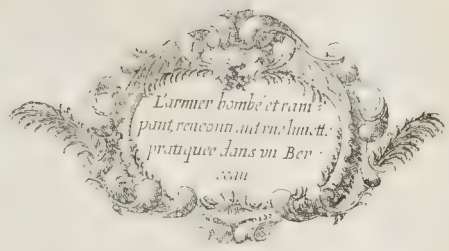 L'arrier bombé et ram
pant, rencontrant une lunette
pratiquée dans un Ber
ceau